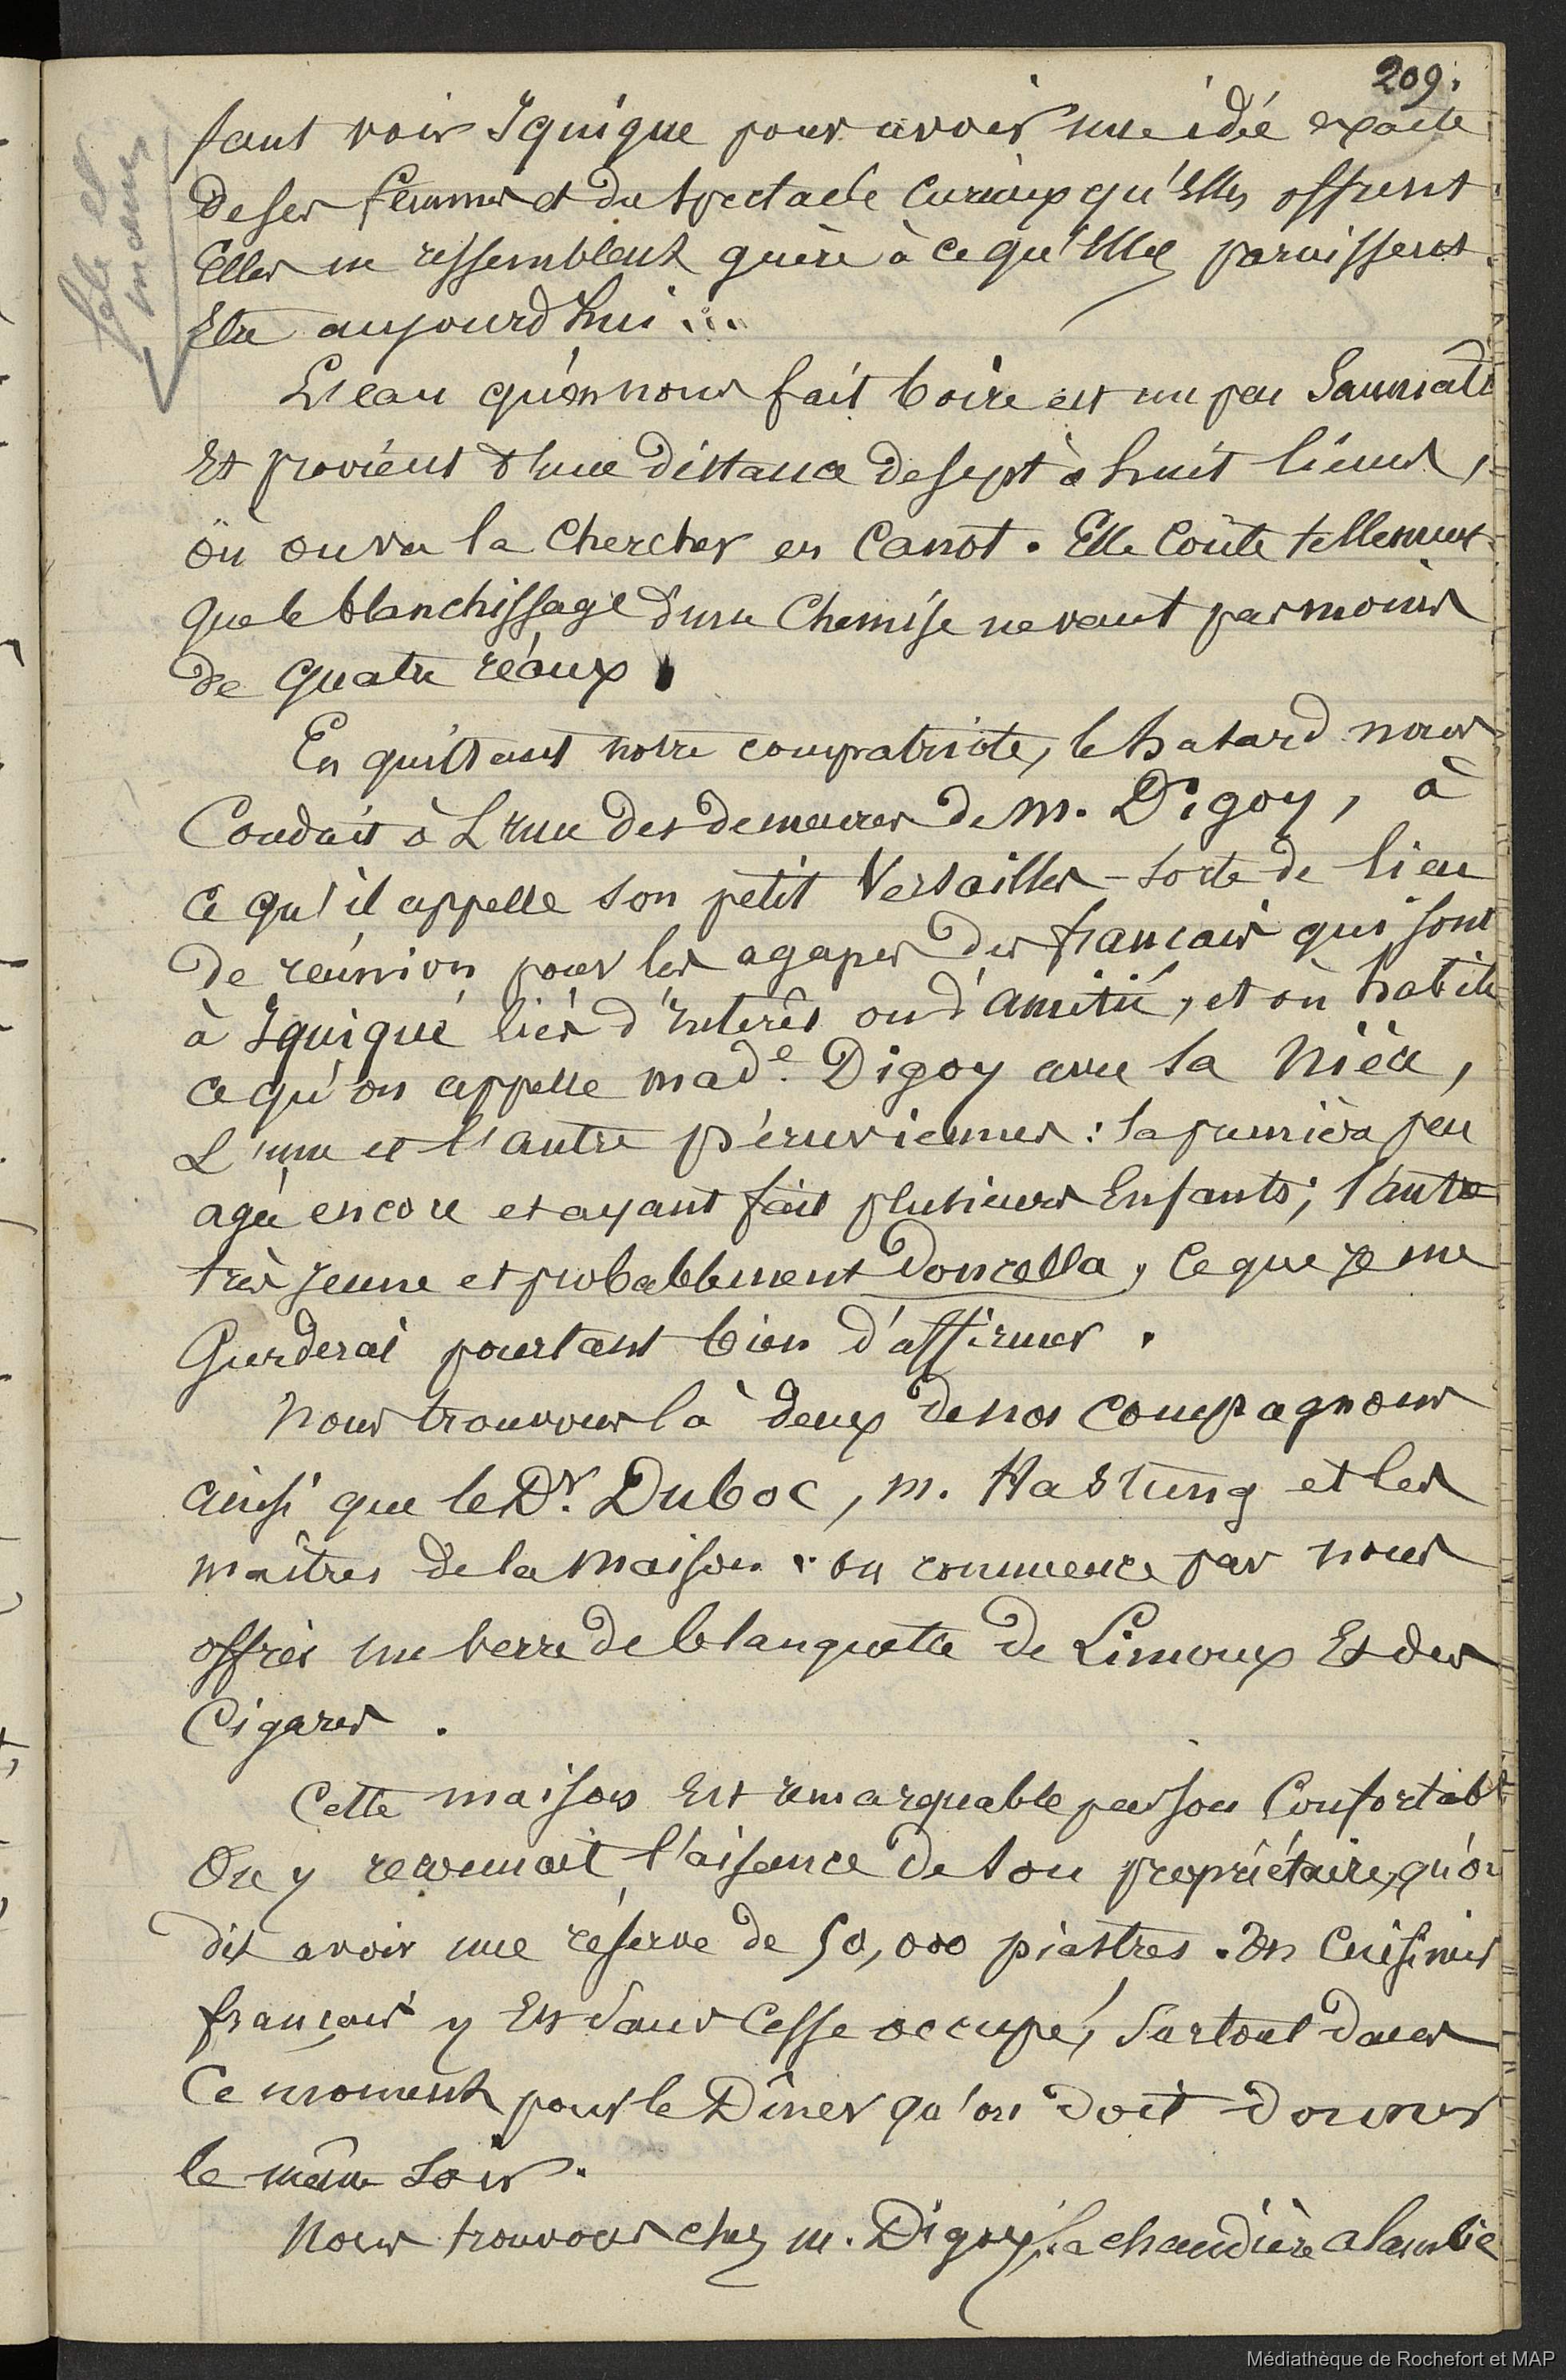 209.
faut voir Iquique pour avoir une idée exacte
de ses femmes et du spectacle curieux qu'elles offrent
Elles ne ressemblent guère à ce qu'elles paraissent
Etre aujourd'hui ...
L'eau qu'on nous fait boire est un peu Saumatre
Et provient d'une distance de sept à huit lieues,
où on va la chercher en Canot. Elle Coûte tellement
que le blanchissage d'une Chemise ne vaut pas moins
de quatre réaux
En quittant notre compatriote, le hasard nous
Conduit à L'une des demeures de M. Digoy, à
ce qu'il appelle son petit Versailles - sorte de lieu
de réunion pour les agapes des français qui sont
à Iquique liés d'Interêt ou d'amitié, et où habite
ce qu'on appelle made. Digoy avec sa Nièce,
L'une et l'autre péruviennes : la première peu
agée encore et ayant fait plusieurs Enfants; l'autre
très jeune et probablement Doncella, Ce que je me
Garderai pourtant bien d'affirmer.
Nous trouvons là deux de nos compagnons
ainsi que le Dr. Duboc, M. Hastung et les
maîtres de la Maison : on commence par nous
offrir un verre de blanquette de Limoux Et des
Cigares.
Cette maison Est remarquable par son Confortabl
On y reconnait l'aisance de son propriétaire, qu'on
dit avoir une réserve de 50,000 piastres. Un Cuisinier
français y Est sans Cesse occupé, Surtout dans
Ce moment pour le Dîner qu'on doit donner
le même soir.
Nous trouvons chez M. Digoy, la chaudière alambic
Médiathèque de Rochefort et MAP